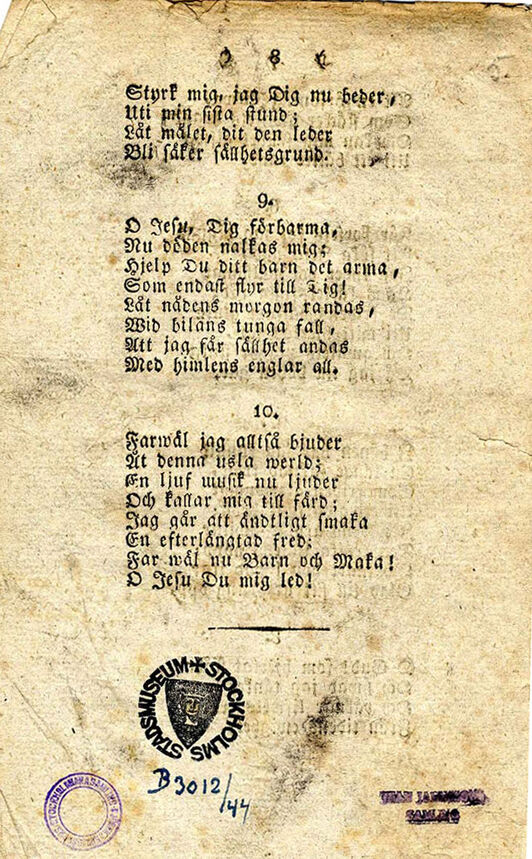 Styrk mig, jag Dig nu beder,
Uti min sista stund;
Låt målet, dit den leder
Bli säker sällhetsgrund.
9.
O Jesu, Dig förbarma,
Nu döden nalkas mig;
Hjelp Du ditt barn det arma,
Som endast flyr till Dig!
Låt nådens morgon randas,
Wid bilans tunga fall,
Att jag får sällhet andas
Med himlens englar all.
10.
Farwäl jag alltså bjuder
Åt denna usla werld;
En ljuf musik nu ljuder
Och kallar mig till färd;
Jag går att ändtligt smaka
En efterlängtad fred;
Far wäl nu Barn och Maka!
O Jesu Du mig led!
STOCKHOLMS STADSMUSEUM
B 3012/44
SAMLING